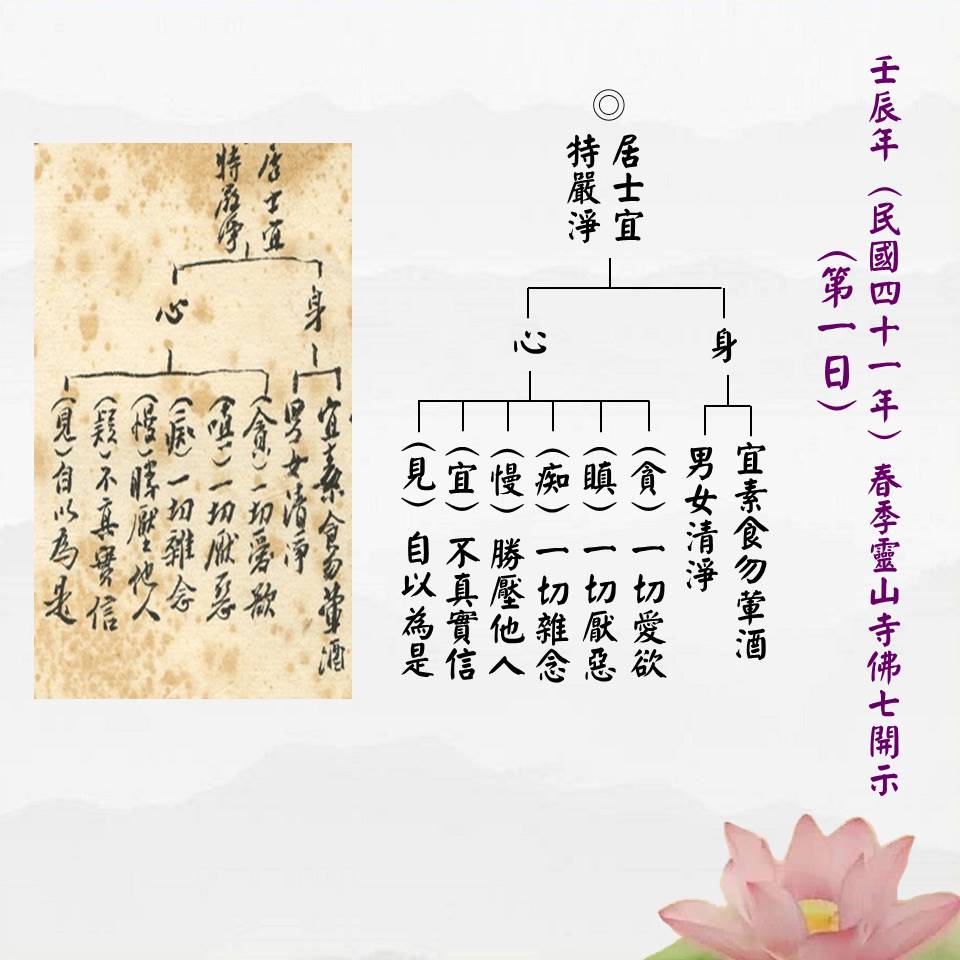 壬辰年（民國四十一年）春季靈山寺佛七開示
（第一日）
◎
居士宜
特嚴淨
身
宜素食勿葷酒
男女清淨
心
（貪）一切愛欲
（瞋）一切厭惡
（痴）一切雜念
（慢）勝壓他人
（宜）不真實信
（見）自以為是
居士宜
特嚴淨
身
宜素食勿葷酒
男女清淨
心
（貪）一切愛欲
（嗔）一切厭惡
（痴）一切雜念
（慢）勝壓他人
（疑）不真實信
（見）自以為是